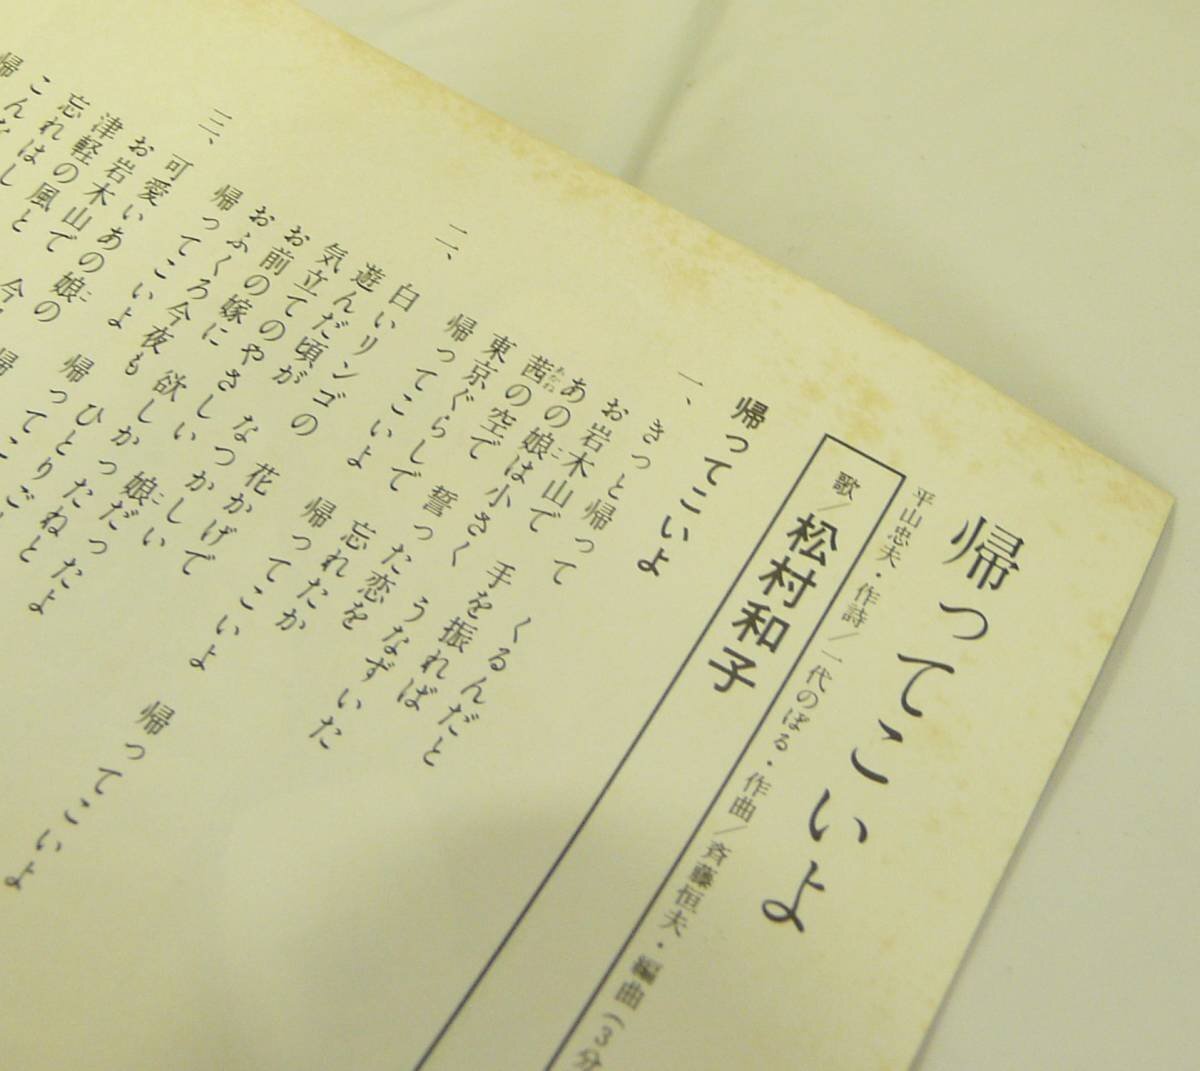 帰ってこいよ
平山忠夫・作詩/一代のぼる・作曲/斉藤恒夫・編曲(3分
歌/松村和子
帰ってこいよ
一、きっと帰って くるんだと
お岩木山で 手を振れば
あの娘は小さく うなずいた
茜の空で 誓った恋を
東京ぐらしで 忘れたか
帰ってこいよ 帰ってこいよ 帰ってこいよ
二、白いリンゴの 花かげで
遊んだ頃が なつかしい
気立てのやさしい 娘だったよ
お前の嫁に 欲しかったねと
おふくろ今夜も ひとりご
帰ってこいよ 帰ってこ
三、可愛いあの娘の
お岩木山で 今
津軽の風と
忘れはし
こんな
帰